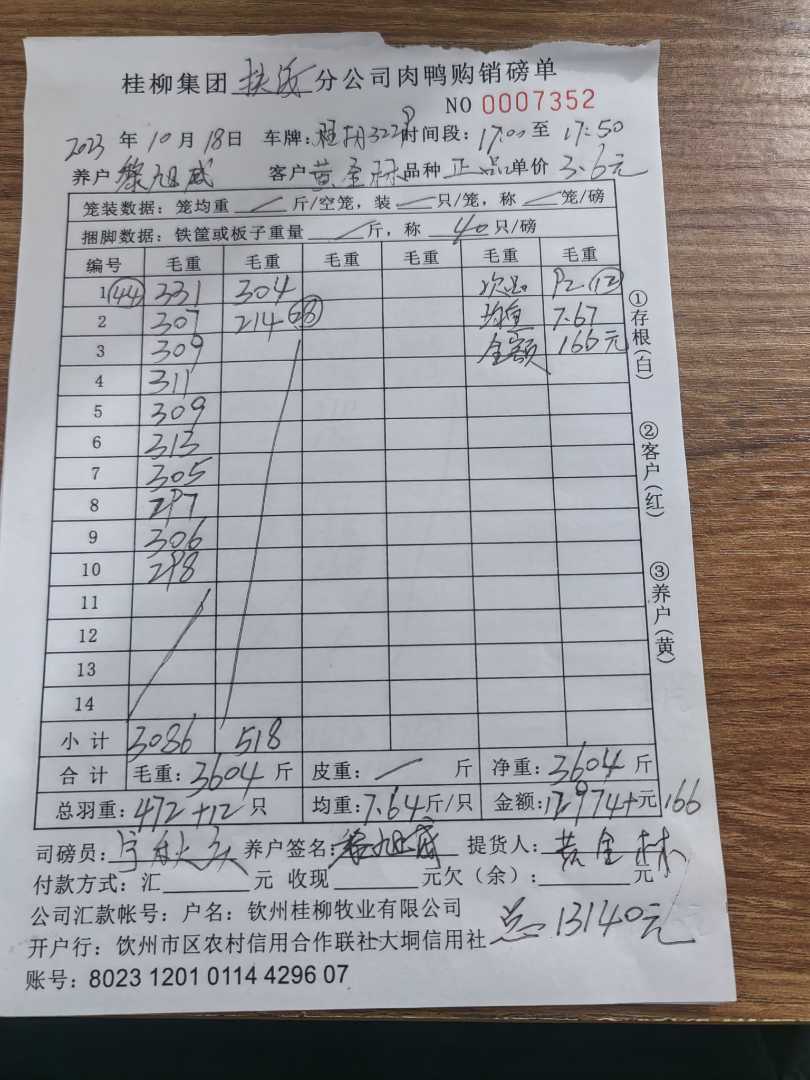 桂柳集团 扶绥 分公司肉鸭购销磅单
NO 0007352
2023 年 10 月 18 日 车牌: 时间段: 17:00 至 17:50
养户 黎旭威 客户 黄金林 品种 正品 单价 3.6元
笼装数据: 笼均重 / 斤/空笼, 装 / 只/笼, 称 / 笼/磅
捆脚数据: 铁筐或板子重量 / 斤, 称 40 只/磅
编号 毛重 毛重 毛重 毛重 毛重 毛重
1 (44) 331 304 次品 92 (12)
2 307 214 (28) 均重 7.67
3 309 金额 166元
4 311
5 309
6 313
7 305
8 297
9 306
10 298
11
12
13
14
小计 3086 518
合计 毛重: 3604 斤 皮重: / 斤 净重: 3604 斤
总羽重: 472+12 只 均重: 7.64 斤/只 金额: 12974+ 元 166
司磅员: 养户签名: 黎旭威 提货人: 黄金林
付款方式: 汇 元 收现 元欠(余): 元
公司汇款帐号: 户名: 钦州桂柳牧业有限公司
总 13140元
开户行: 钦州市区农村信用合作联社大垌信用社
账号: 8023 1201 0114 4296 07
①存根(白)
②客户(红)
③养户(黄)